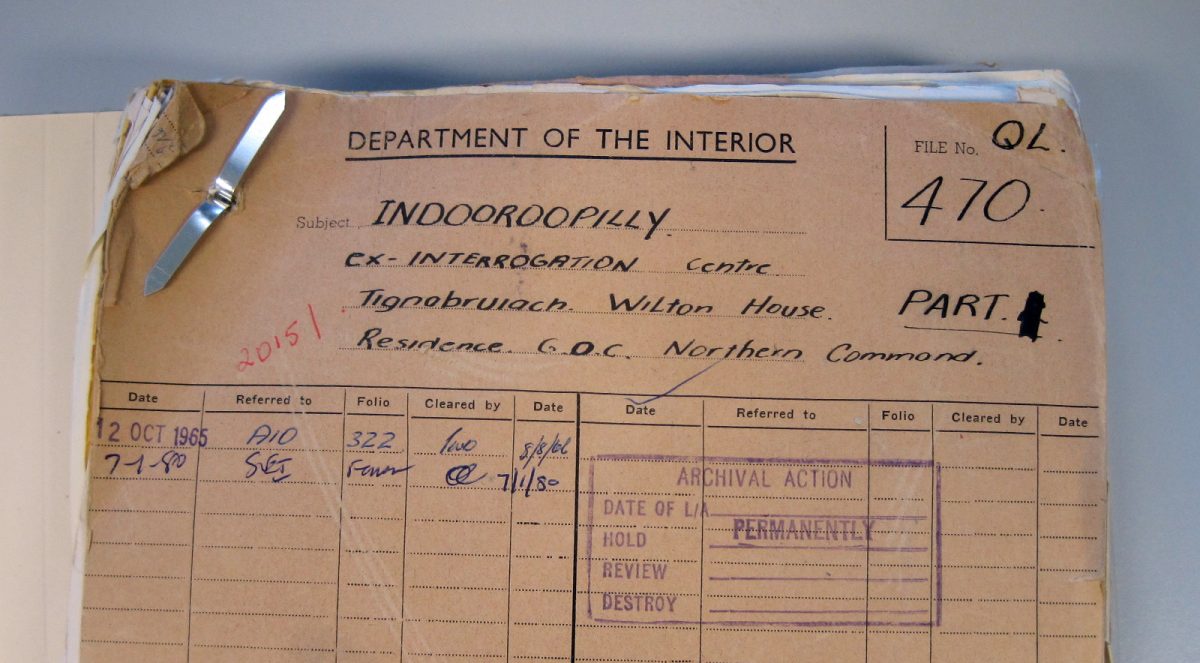 DEPARTMENT OF THE INTERIOR
FILE No. QL.
470.
Subject INDOOROOPILLY.
ex-INTERROGATION Centre.
Tignabruiach. Wilton House.
PART.
Residence. G.O.C. Northern Command.
20151
Date Referred to Folio Cleared by Date Date Referred to Folio Cleared by Date
12 OCT 1965 322 8/8/66
7-1-80 7/1/80
ARCHIVAL ACTION
DATE OF L/A
HOLD PERMANENTLY
REVIEW
DESTROY